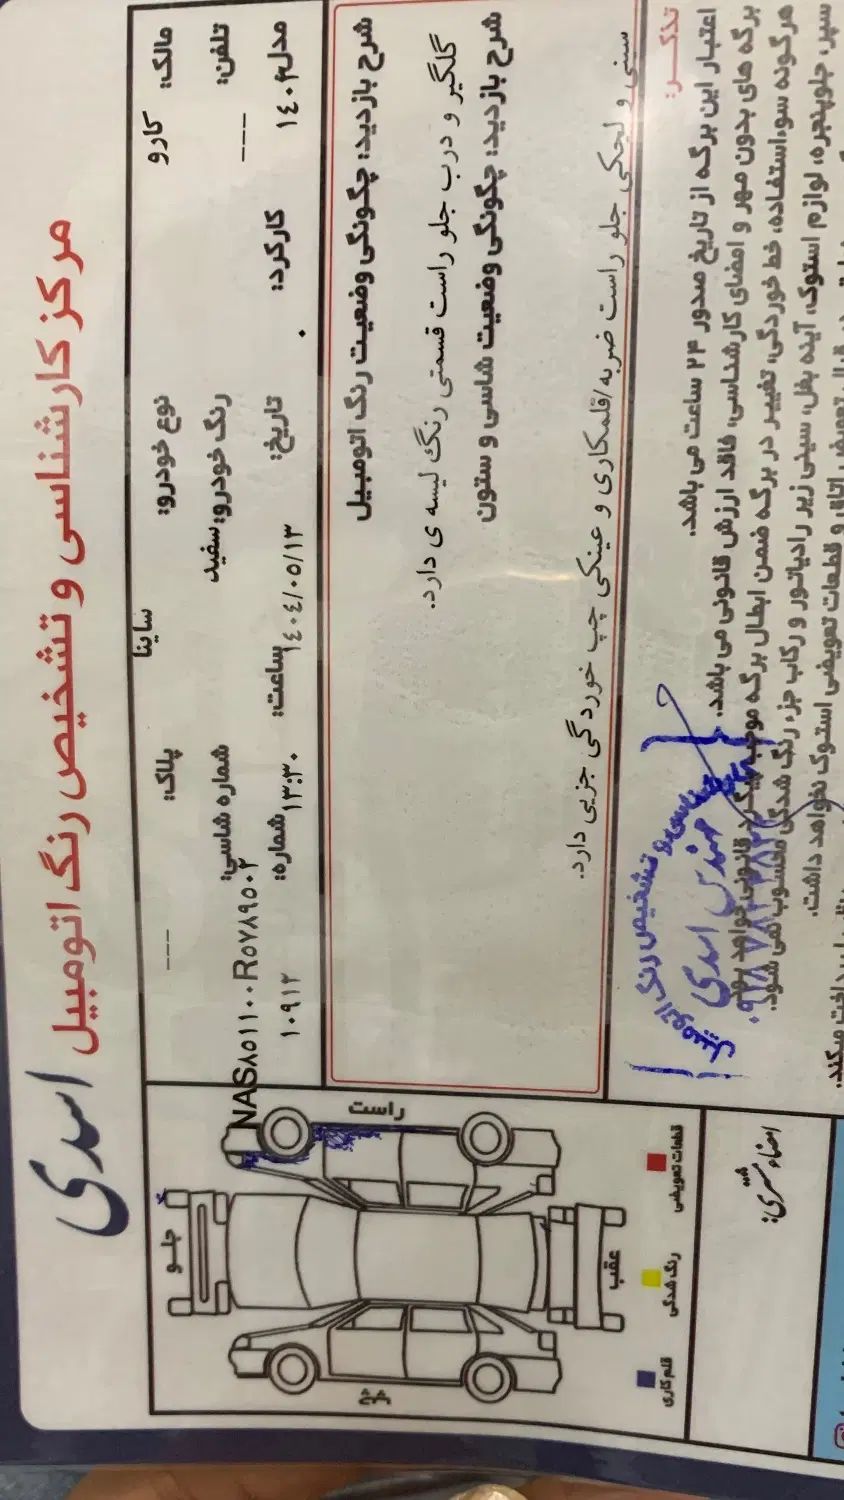 مرکز کارشناسی و تشخیص رنگ اتومبیل اسدی
مالک: کارو
نوع خودرو: ساینا
پلاک: ---
تلفن: ---
رنگ خودرو: سفید
شماره شاسی: NAS851100R0789502
مدل: ۱۴۰۴
کارکرد: ۰
تاریخ: ۱۴۰۴/۰۵/۱۳
ساعت: ۱۳:۳۰
شماره: ۱۰۹۱۲
شرح بازدید: چگونگی وضعیت رنگ اتومبیل
گلگیر و درب جلو راست قسمتی رنگ لیسه ی دارد.
شرح بازدید: چگونگی وضعیت شاسی و ستون
سینی و لچکی جلو راست ضربه/قلمکاری و عینکی چپ خوردگی جزیی دارد.
تذکر:
اعتبار این برگه از تاریخ صدور ۲۴ ساعت می باشد.
برگه های بدون مهر و امضای کارشناسی، فاقد ارزش قانونی می باشد.
هرگونه سوءاستفاده، خط خوردگی، تغییر در برگه ضمن ابطال برگه موجب پیگرد قانونی خواهد بود.
سپر، جلوپنجره، لوازم استوک، آینه بغل، سینی زیر رادیاتور و رکاب جزء رنگ شدگی محسوب نمی شود.
تعویض اتاق و قطعات تعویضی استوک نخواهد داشت.
تشخیص رنگ
مهندس اسدی
راست
جلو
عقب
چپ
قطعات تعویضی
رنگ شدگی
قلم کاری
امضاء مشتری: